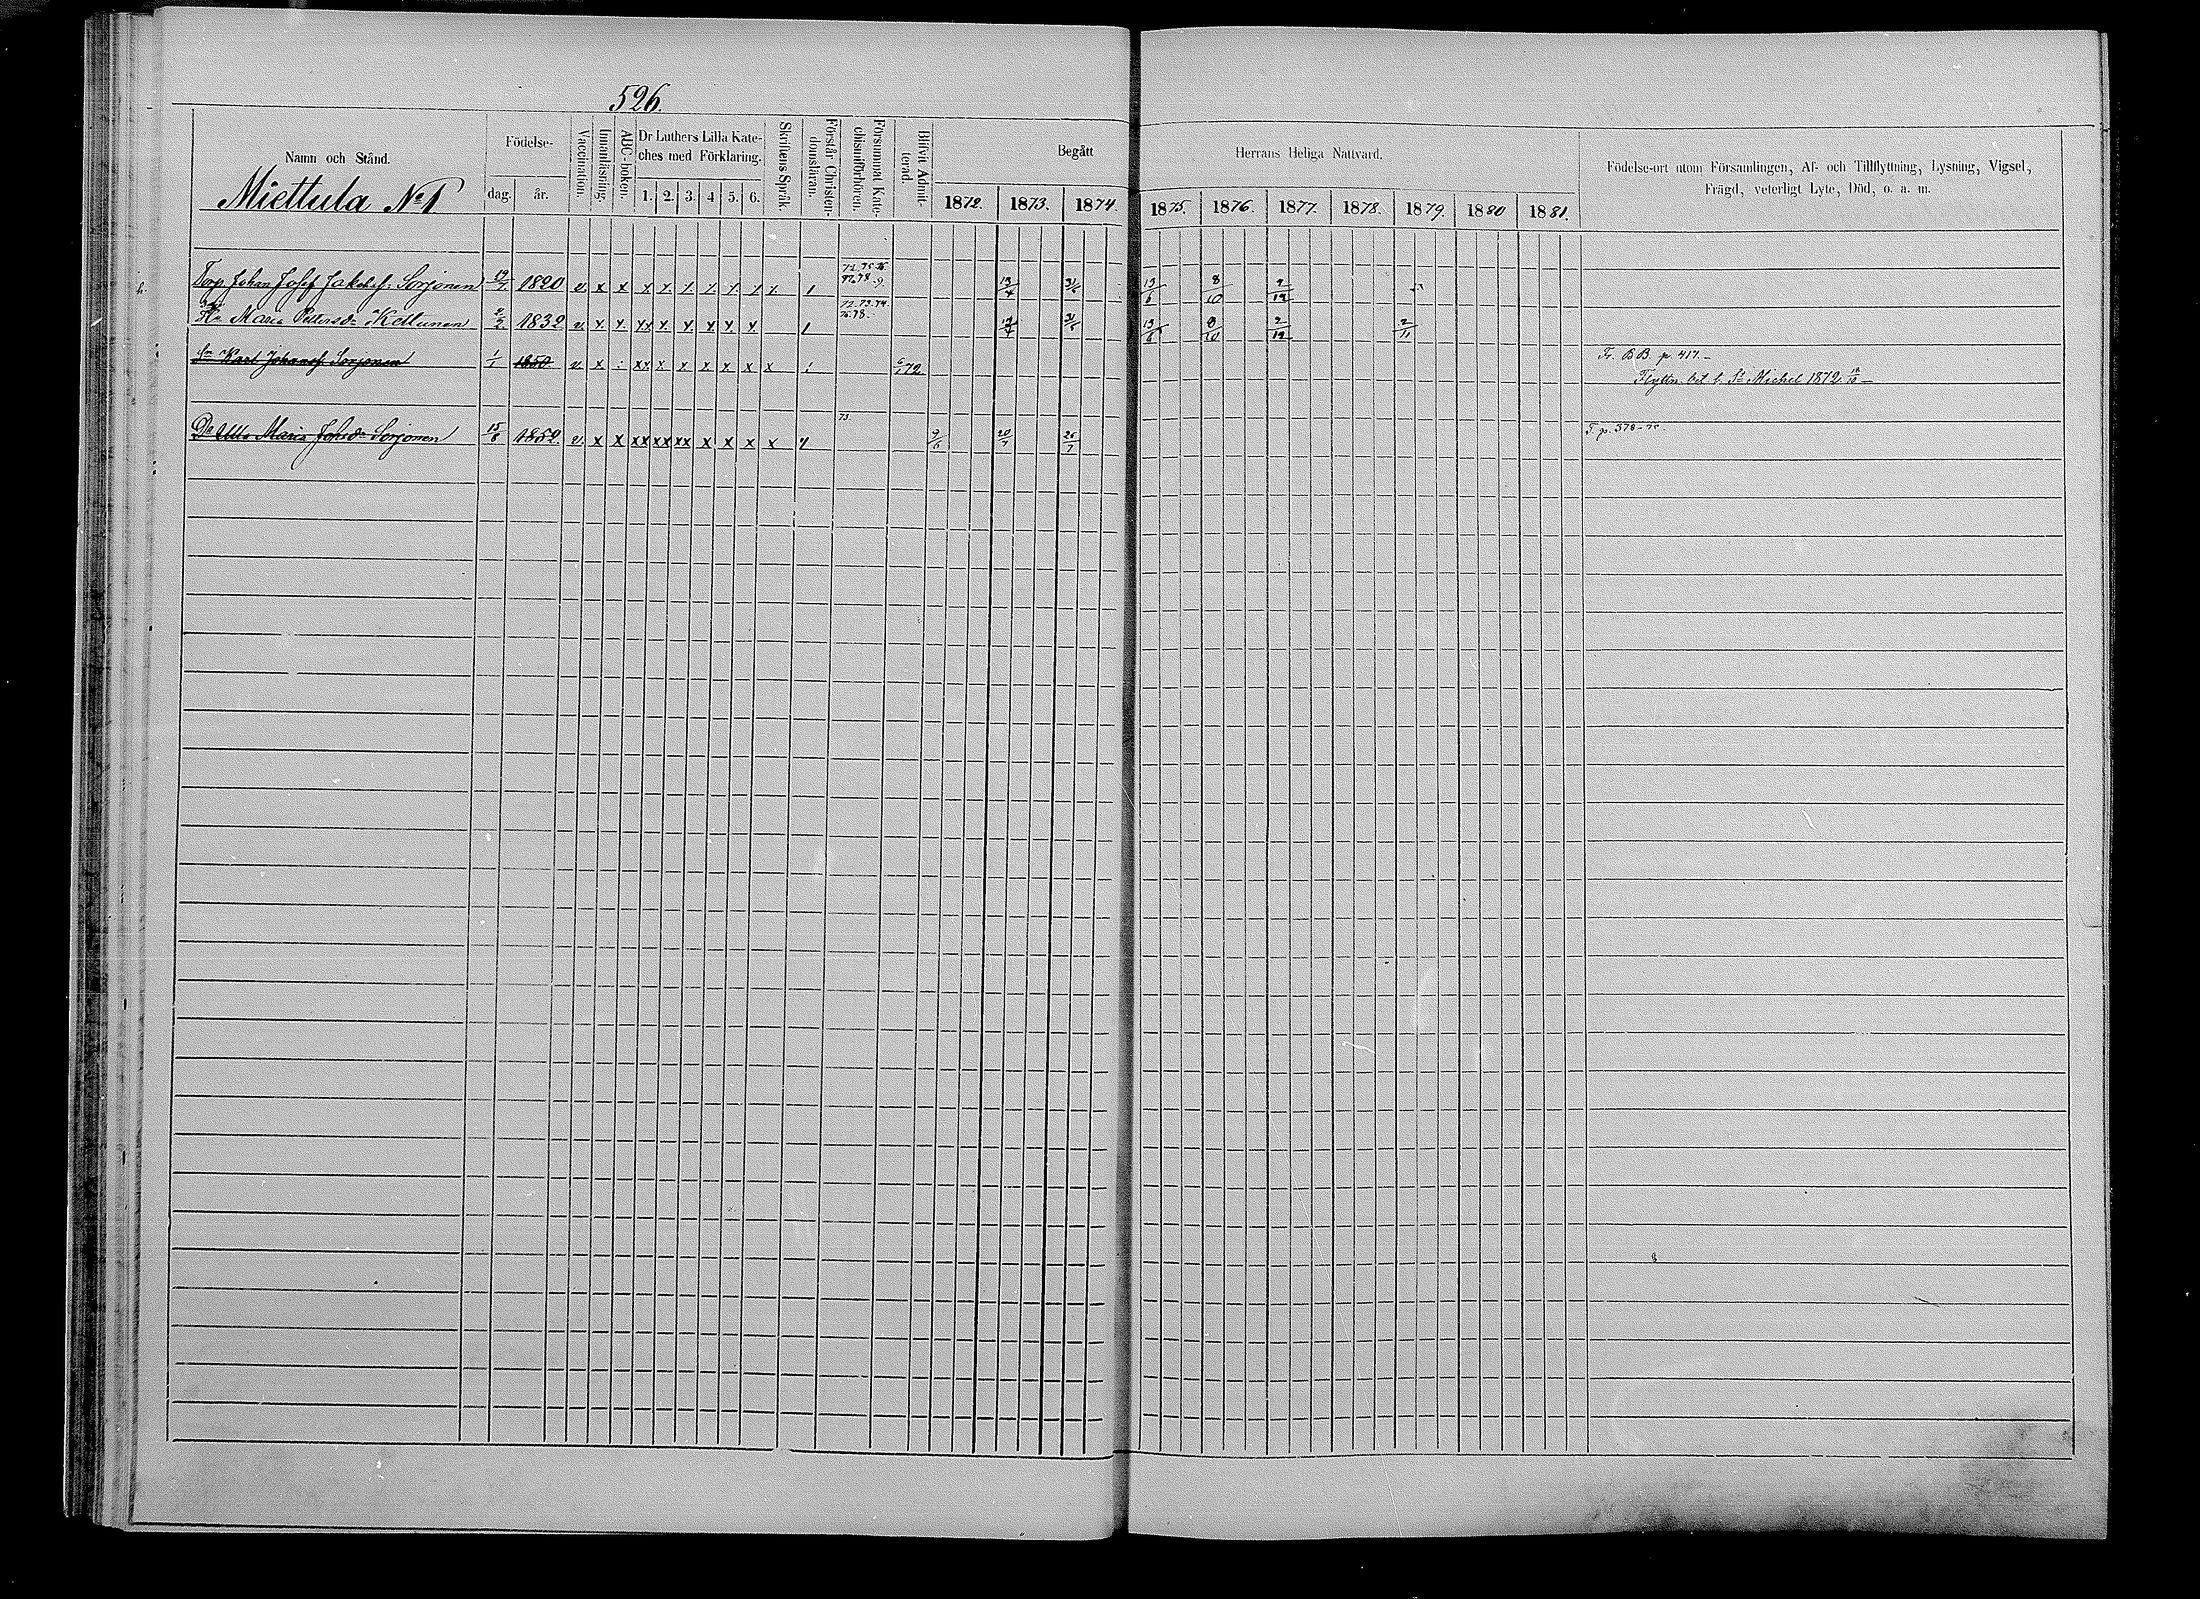 526.
Namn och Stånd.
Födelse-
dag. år.
Vaccination.
Innanläsning.
ABC-boken.
Dr Luthers Lilla Kate-
ches med Förklaring.
1. 2. 3. 4 5. 6.
Skriftens Språk.
Förstår Christen-
domsläran.
Försummat Kate-
chismiförhören.
Blifvit Admit-
terad.
Begått
Herrans Heliga Nattvard.
1872. 1873. 1874. 1875. 1876. 1877. 1878. 1879. 1880 1881.
Födelse-ort utom Församlingen, Af- och Tillflyttning, Lysning, Vigsel,
Frägd, veterligt Lyte, Död, o. a. m.
Miettula No 1
Torp. Johan Josef Jakobsf: Sorjonen 19/7 1820 v. x x x x x x x x x 1 13/4 31/5 13/6 8/10 2/12
Hu Maria Pettersdr Kettunen 2/2 1832 v. x x. xx x. x. x x. x. 1 31/5 13/6 8/10 2/12 2/11
Sn Karl Johansf Sorjonen 1/1 1850 v. x xx x x x x x x 72 Fr. BB. p. 417.-
Flyttn. bet. t. St Michel 1872 18/10 -
Dr Ulla Maria Johsdr Sorjonen 15/8 1852 v. x x xx xx xx x x x x 73. 20/7 26/7 T. p. 378-75